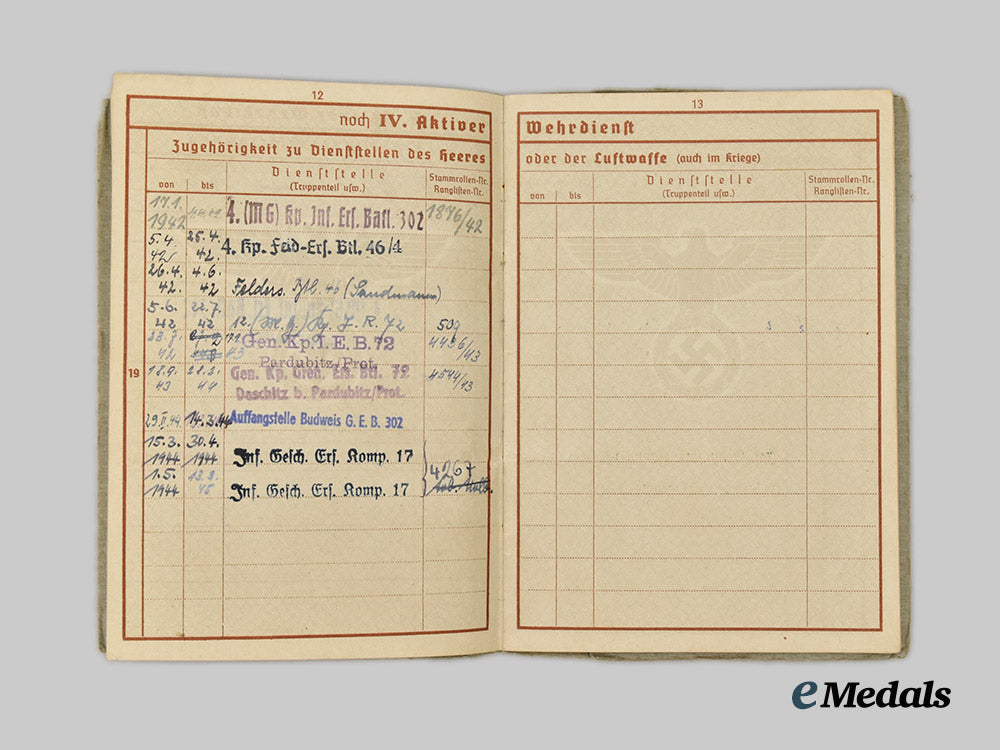 12
noch IV. Aktiver
Zugehörigkeit zu Dienststellen des Heeres
von bis Dienststelle (Truppenteil usw.) Stammrollen-Nr. Ranglisten-Nr.
17.1. 1942 4. (MG) Kp. Inf. Ers. Batl. 302 1876/42
5.4. 42 25.4. 42. 4. Kp. Feld-Ers. Btl. 46/4
26.4. 42. 4.6. 42 Felders. Btl. 46 (Sandmann)
5.6. 42 22.7. 42 12. (M.G.) Kp. J. R. 72 509
23.8. 42 Gen. Kp. I. E. B. 72 4436/43
Pardubitz/Prot.
18.9. 43 28.2. 44 Gen. Kp. Gren. Ers. Btl. 72 4544/43
Daschitz b. Pardubitz/Prot.
29.II.44. 14.3.44 Auffangstelle Budweis G. E. B. 302
15.3. 1944 30.4. 1944 Inf. Gesch. Ers. Komp. 17
4267
1.5. 1944 13.3. 45 Inf. Gesch. Ers. Komp. 17
19
13
Wehrdienst
oder der Luftwaffe (auch im Kriege)
von bis Dienststelle (Truppenteil usw.) Stammrollen-Nr. Ranglisten-Nr.
eMedals